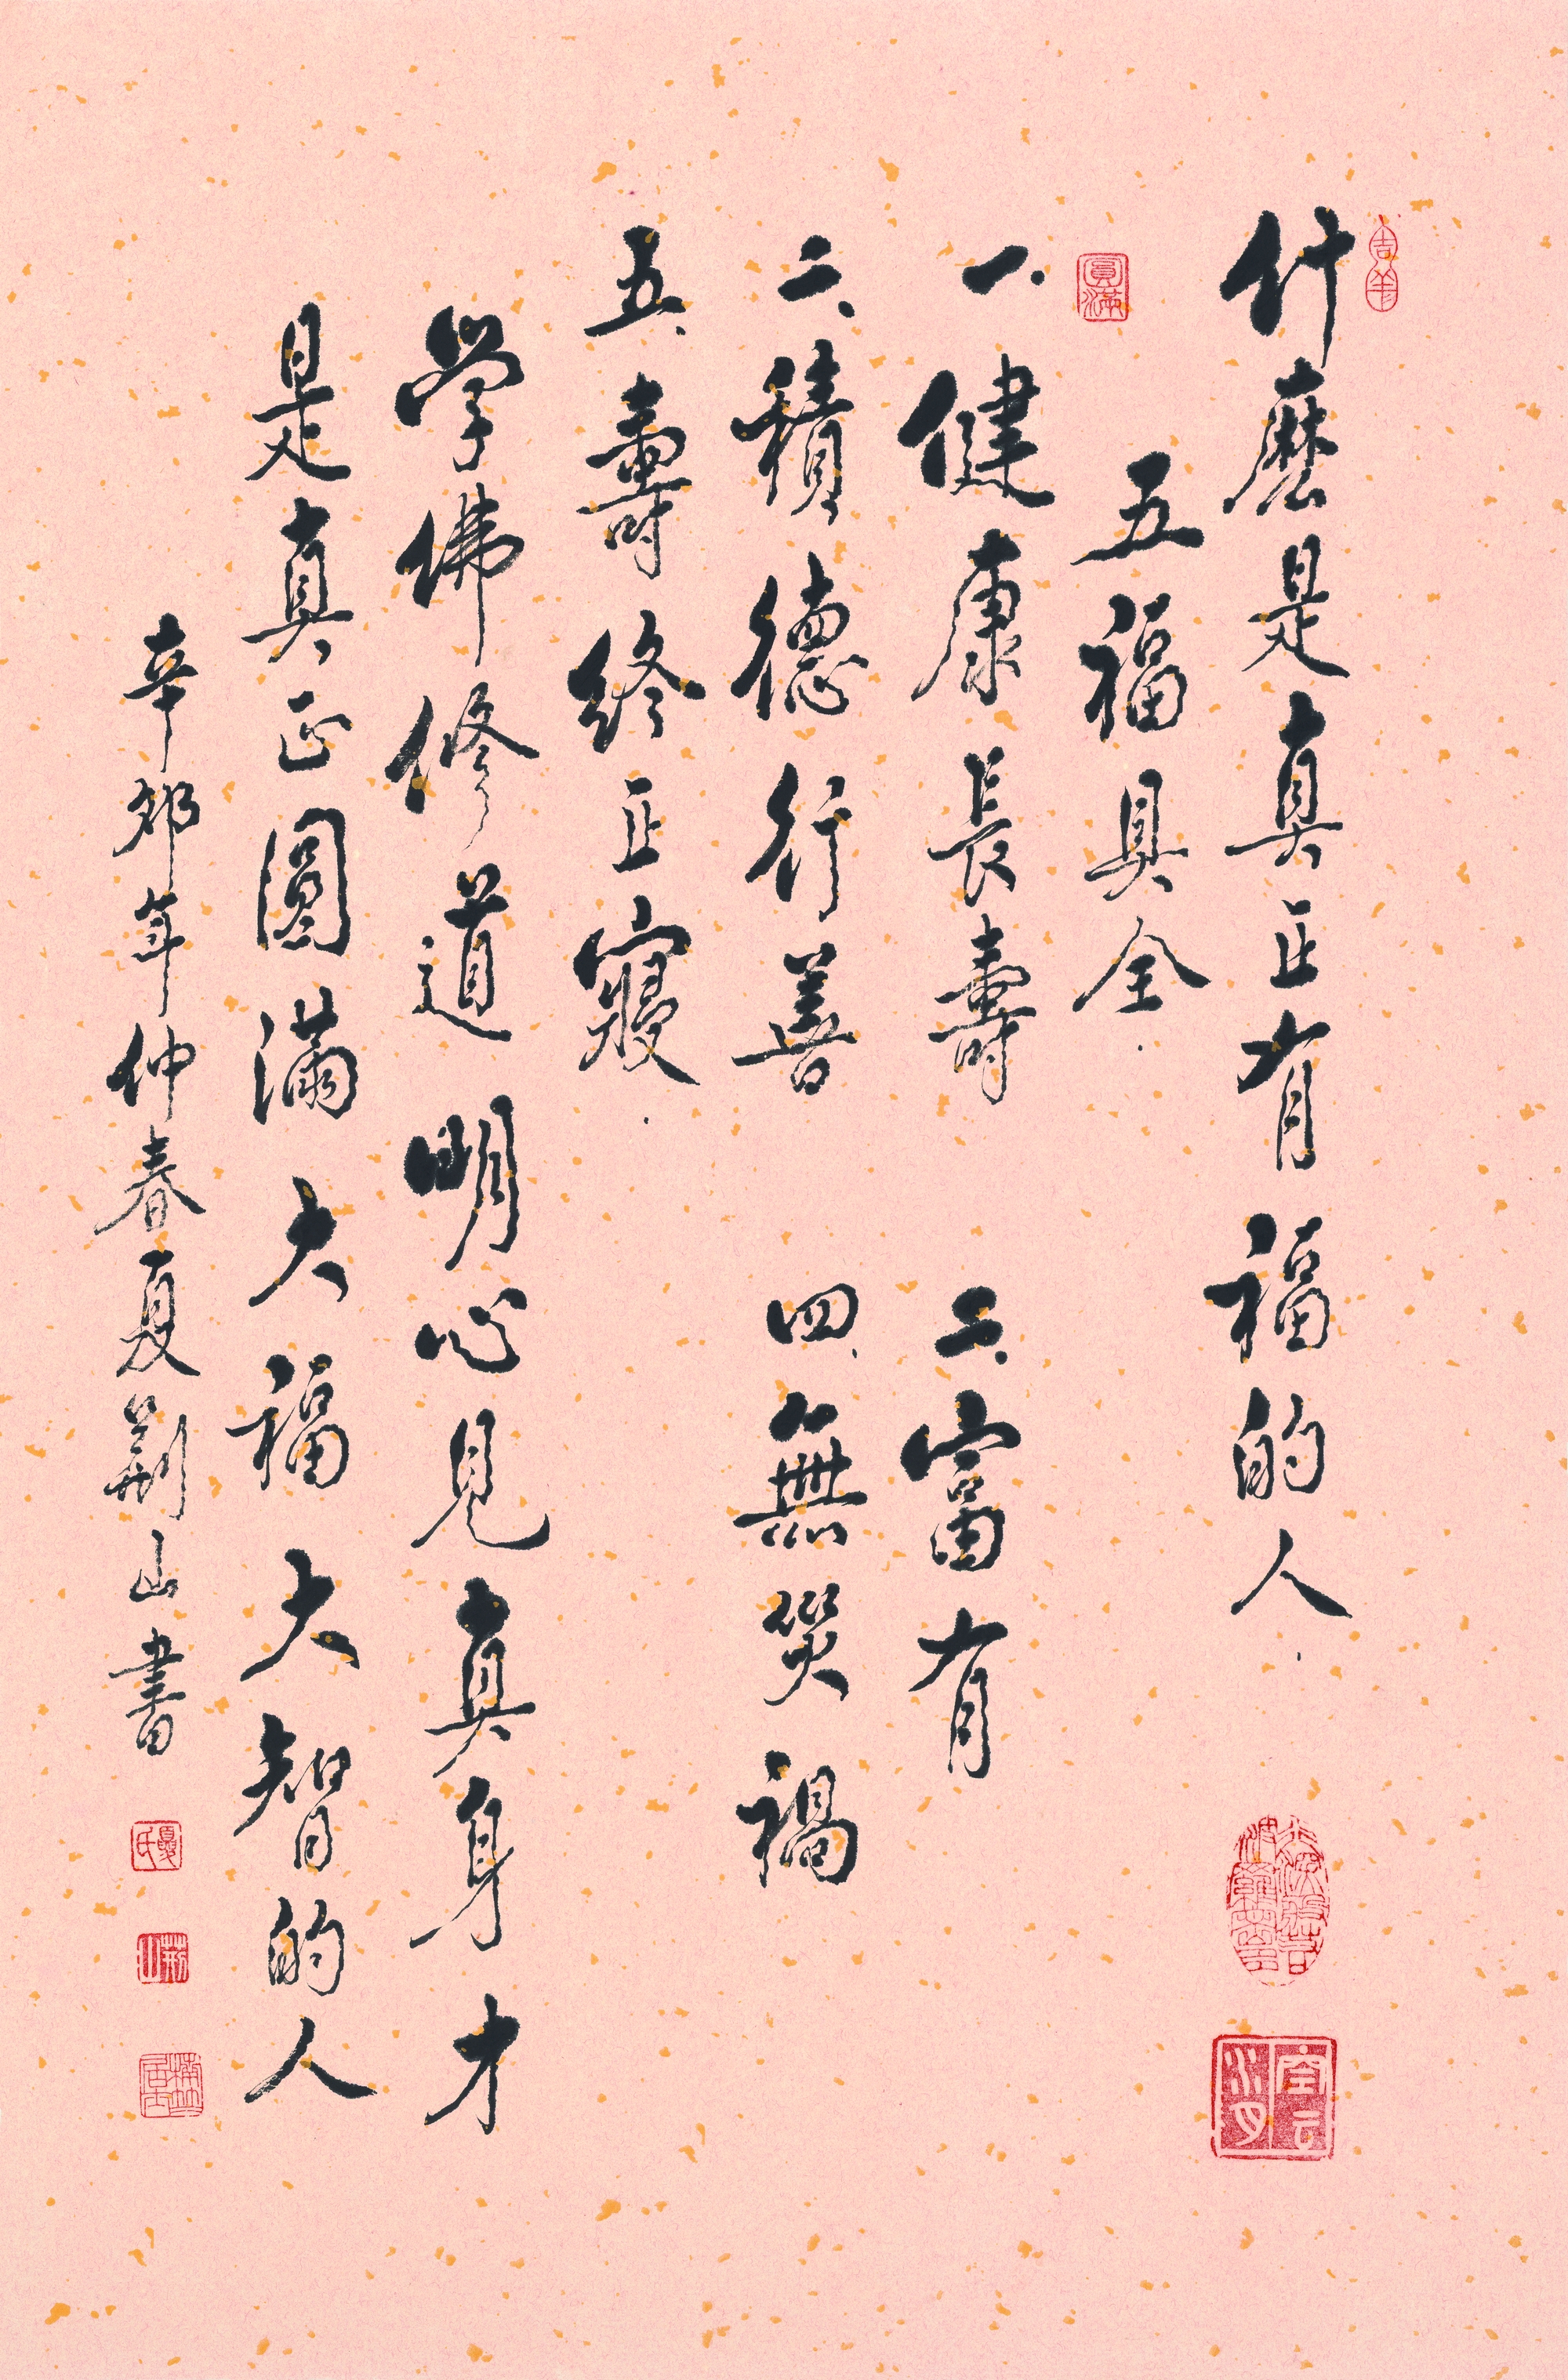 吉羊
什麼是真正有福的人.
圓滿
五福具全.
一、健康長壽 二、富有
三、積德行善 四、無災禍
五、壽終正寢.
學佛修道明心見真身才
是真正圓滿大福大智的人
辛卯年仲春夏荊山書
夏氏
荊山